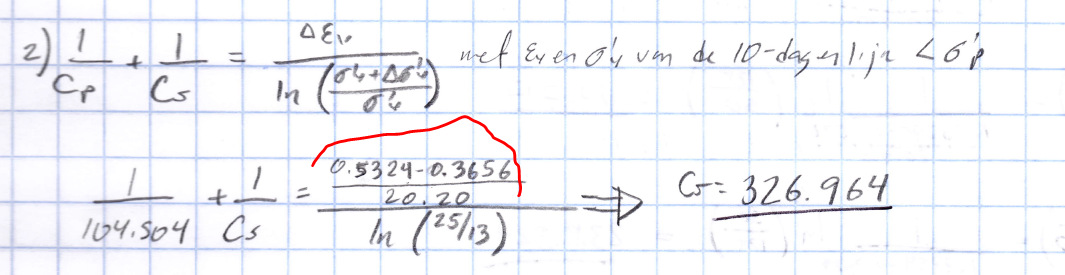 2) 1/Cp + 1/Cs = Δεv / ln((σ'v+Δσ'v)/σ'v) met εv en σ'v van de 10-dagen lijn < σ'p
1/104.504 + 1/Cs = ((0.5324-0.3656)/20.20) / ln(25/13) ⟹ Cs = 326.964